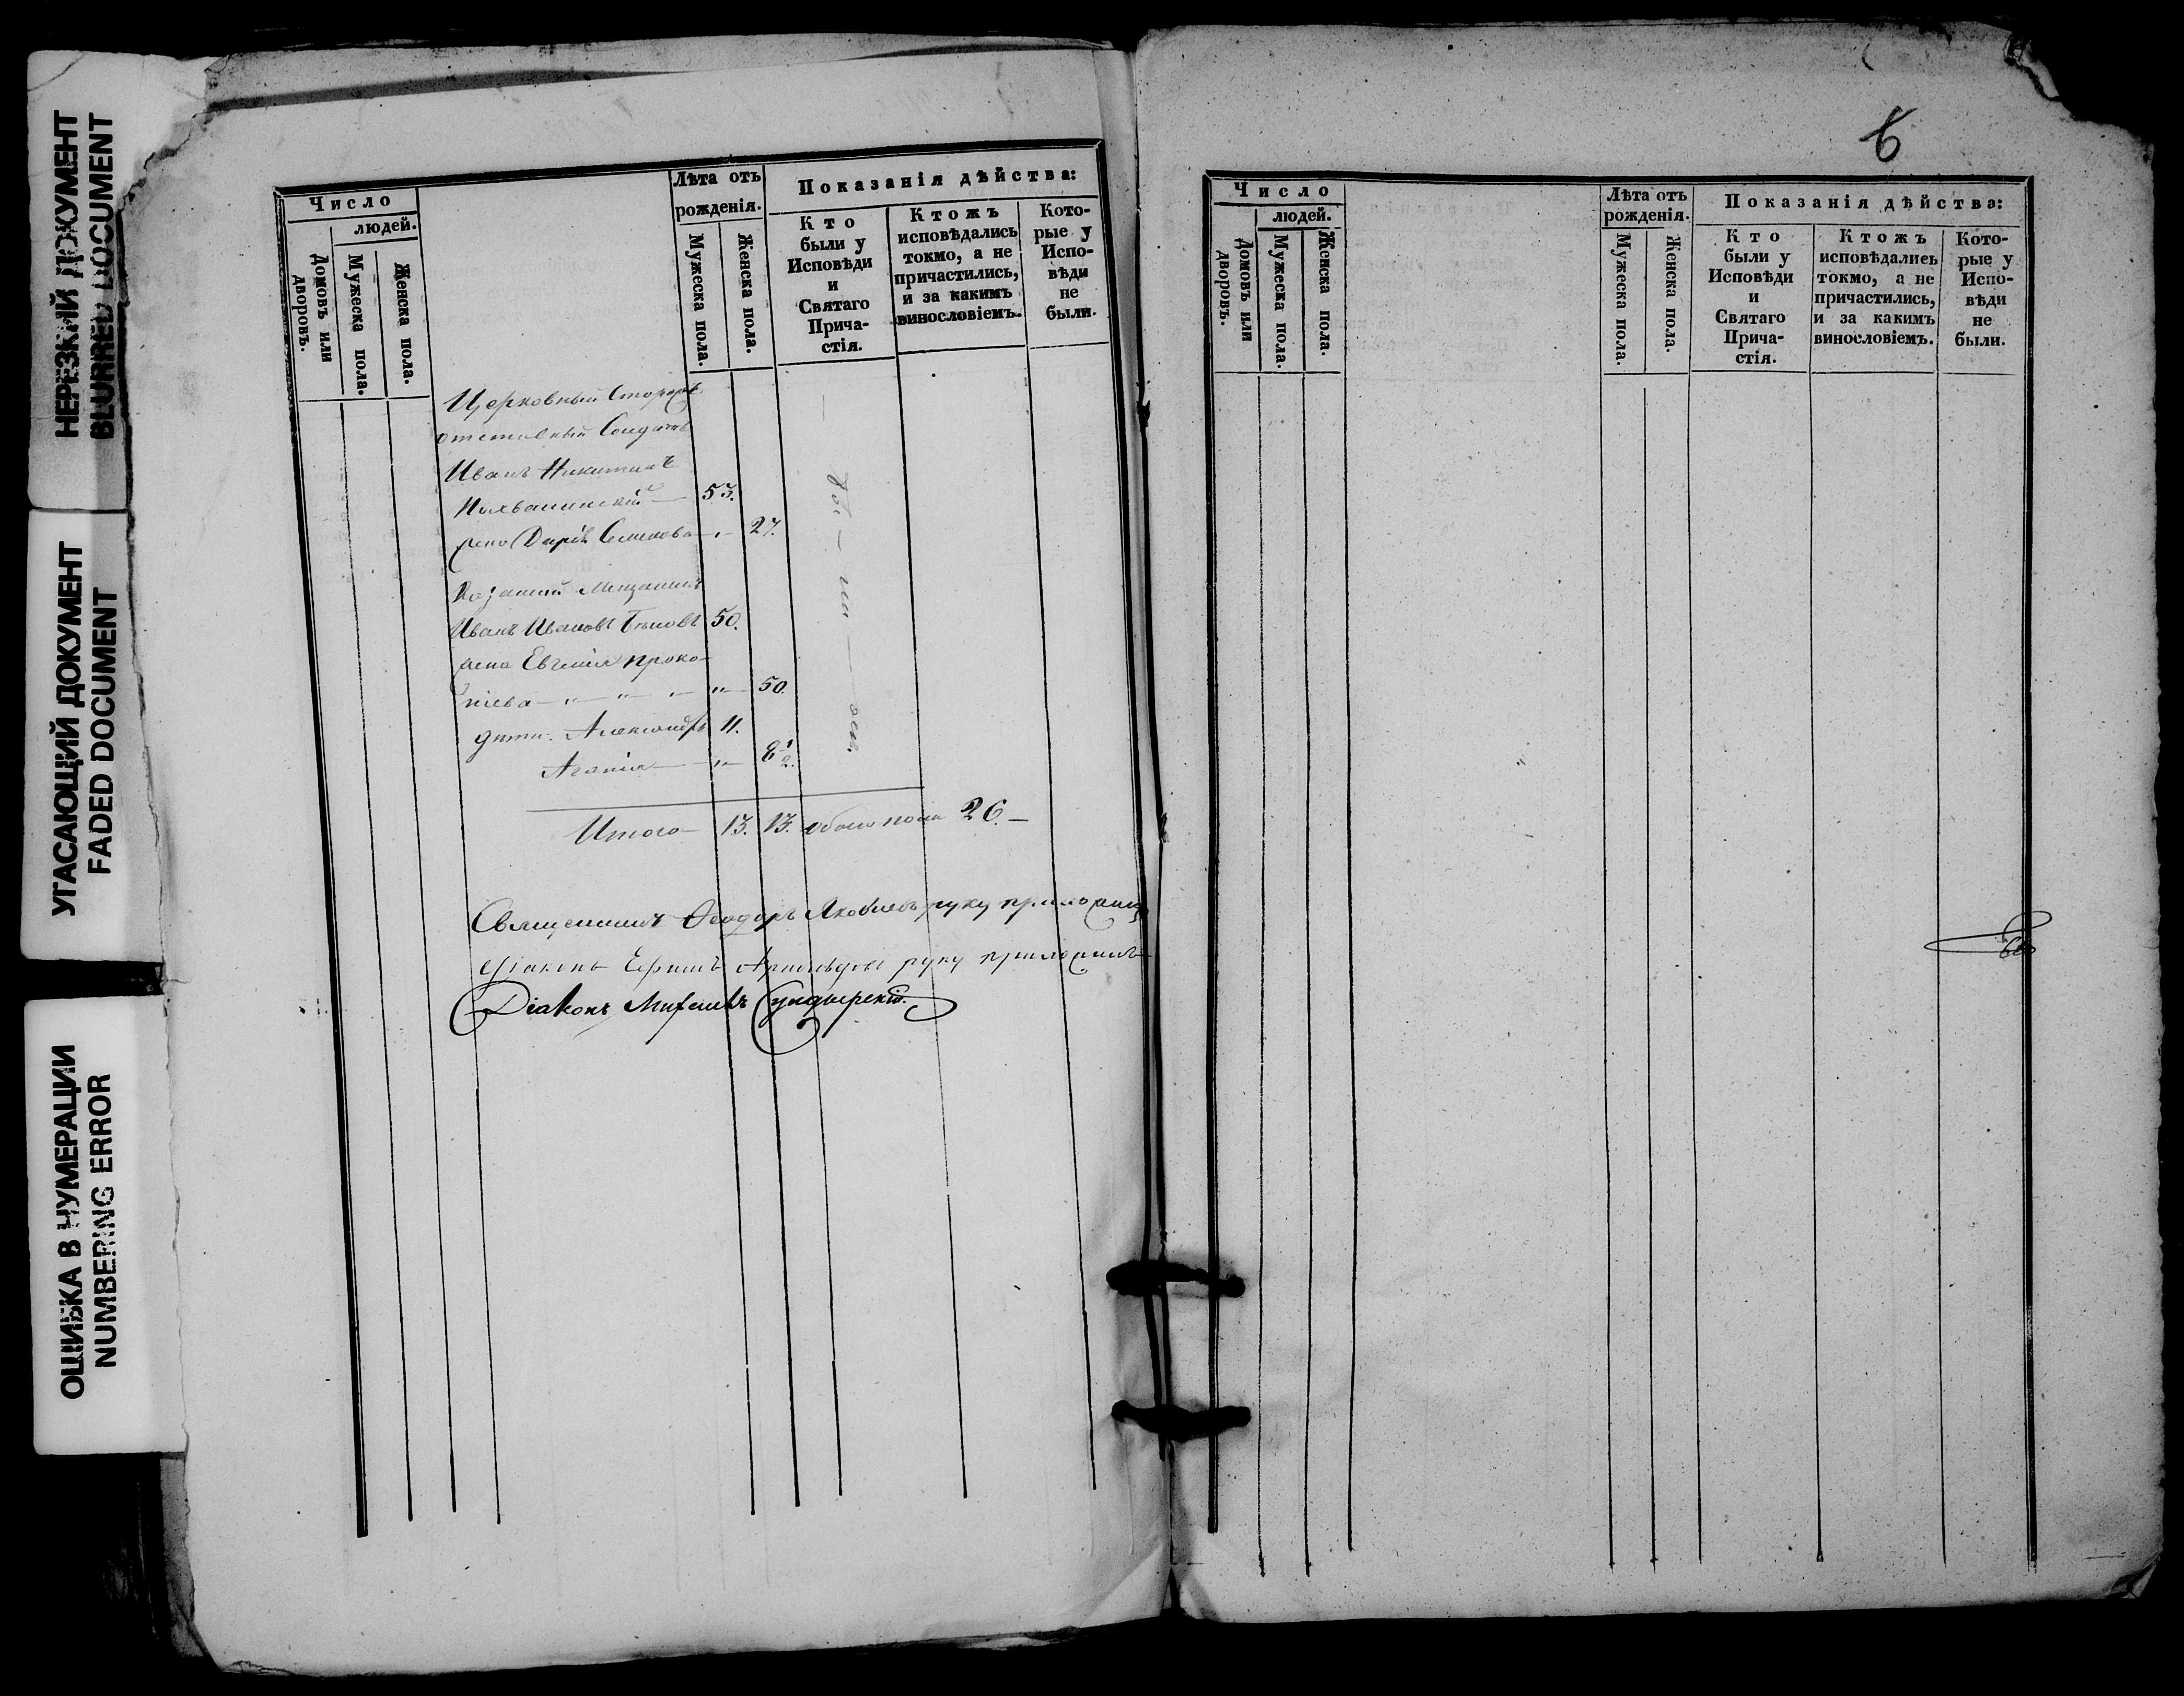 НЕРЕЗКИЙ ДОКУМЕНТ
BLURRED DOCUMENT
УГАСАЮЩИЙ ДОКУМЕНТ
FADED DOCUMENT
ОШИБКА В НУМЕРАЦИИ
NUMBERING ERROR
Число
людей.
Домовъ или дворовъ.
Мужеска пола.
Женска пола.
Лѣта отъ
рожденія.
Мужеска пола.
Женска пола.
Показанія дѣйства:
Кто
были у
Исповѣди
и
Святаго
Прича-
стія.
Ктожъ
исповѣдались
токмо, а не
причастились,
и за какимъ
винословіемъ.
Кото-
рые у
Испо-
вѣди
не
были.
Церковный Сторожъ
отставный Солдатъ
Иванъ Никитинъ
53.
жена Дарія 27.
Мещанинъ
Иванъ Ивановъ 50.
жена Евгенія Проко-
піева 50.
дѣти. Александръ 11.
8 1/2.
Итого 13. 13. обоего пола 26.
Священникъ Ѳеодоръ Яковлевъ руку приложилъ
руку приложилъ
Діаконъ
6
Число
людей.
Домовъ или дворовъ.
Мужеска пола.
Женска пола.
Лѣта отъ
рожденія.
Мужеска пола.
Женска пола.
Показанія дѣйства:
Кто
были у
Исповѣди
и
Святаго
Прича-
стія.
Ктожъ
исповѣдались
токмо, а не
причастились,
и за какимъ
винословіемъ.
Кото-
рые у
Испо-
вѣди
не
были.